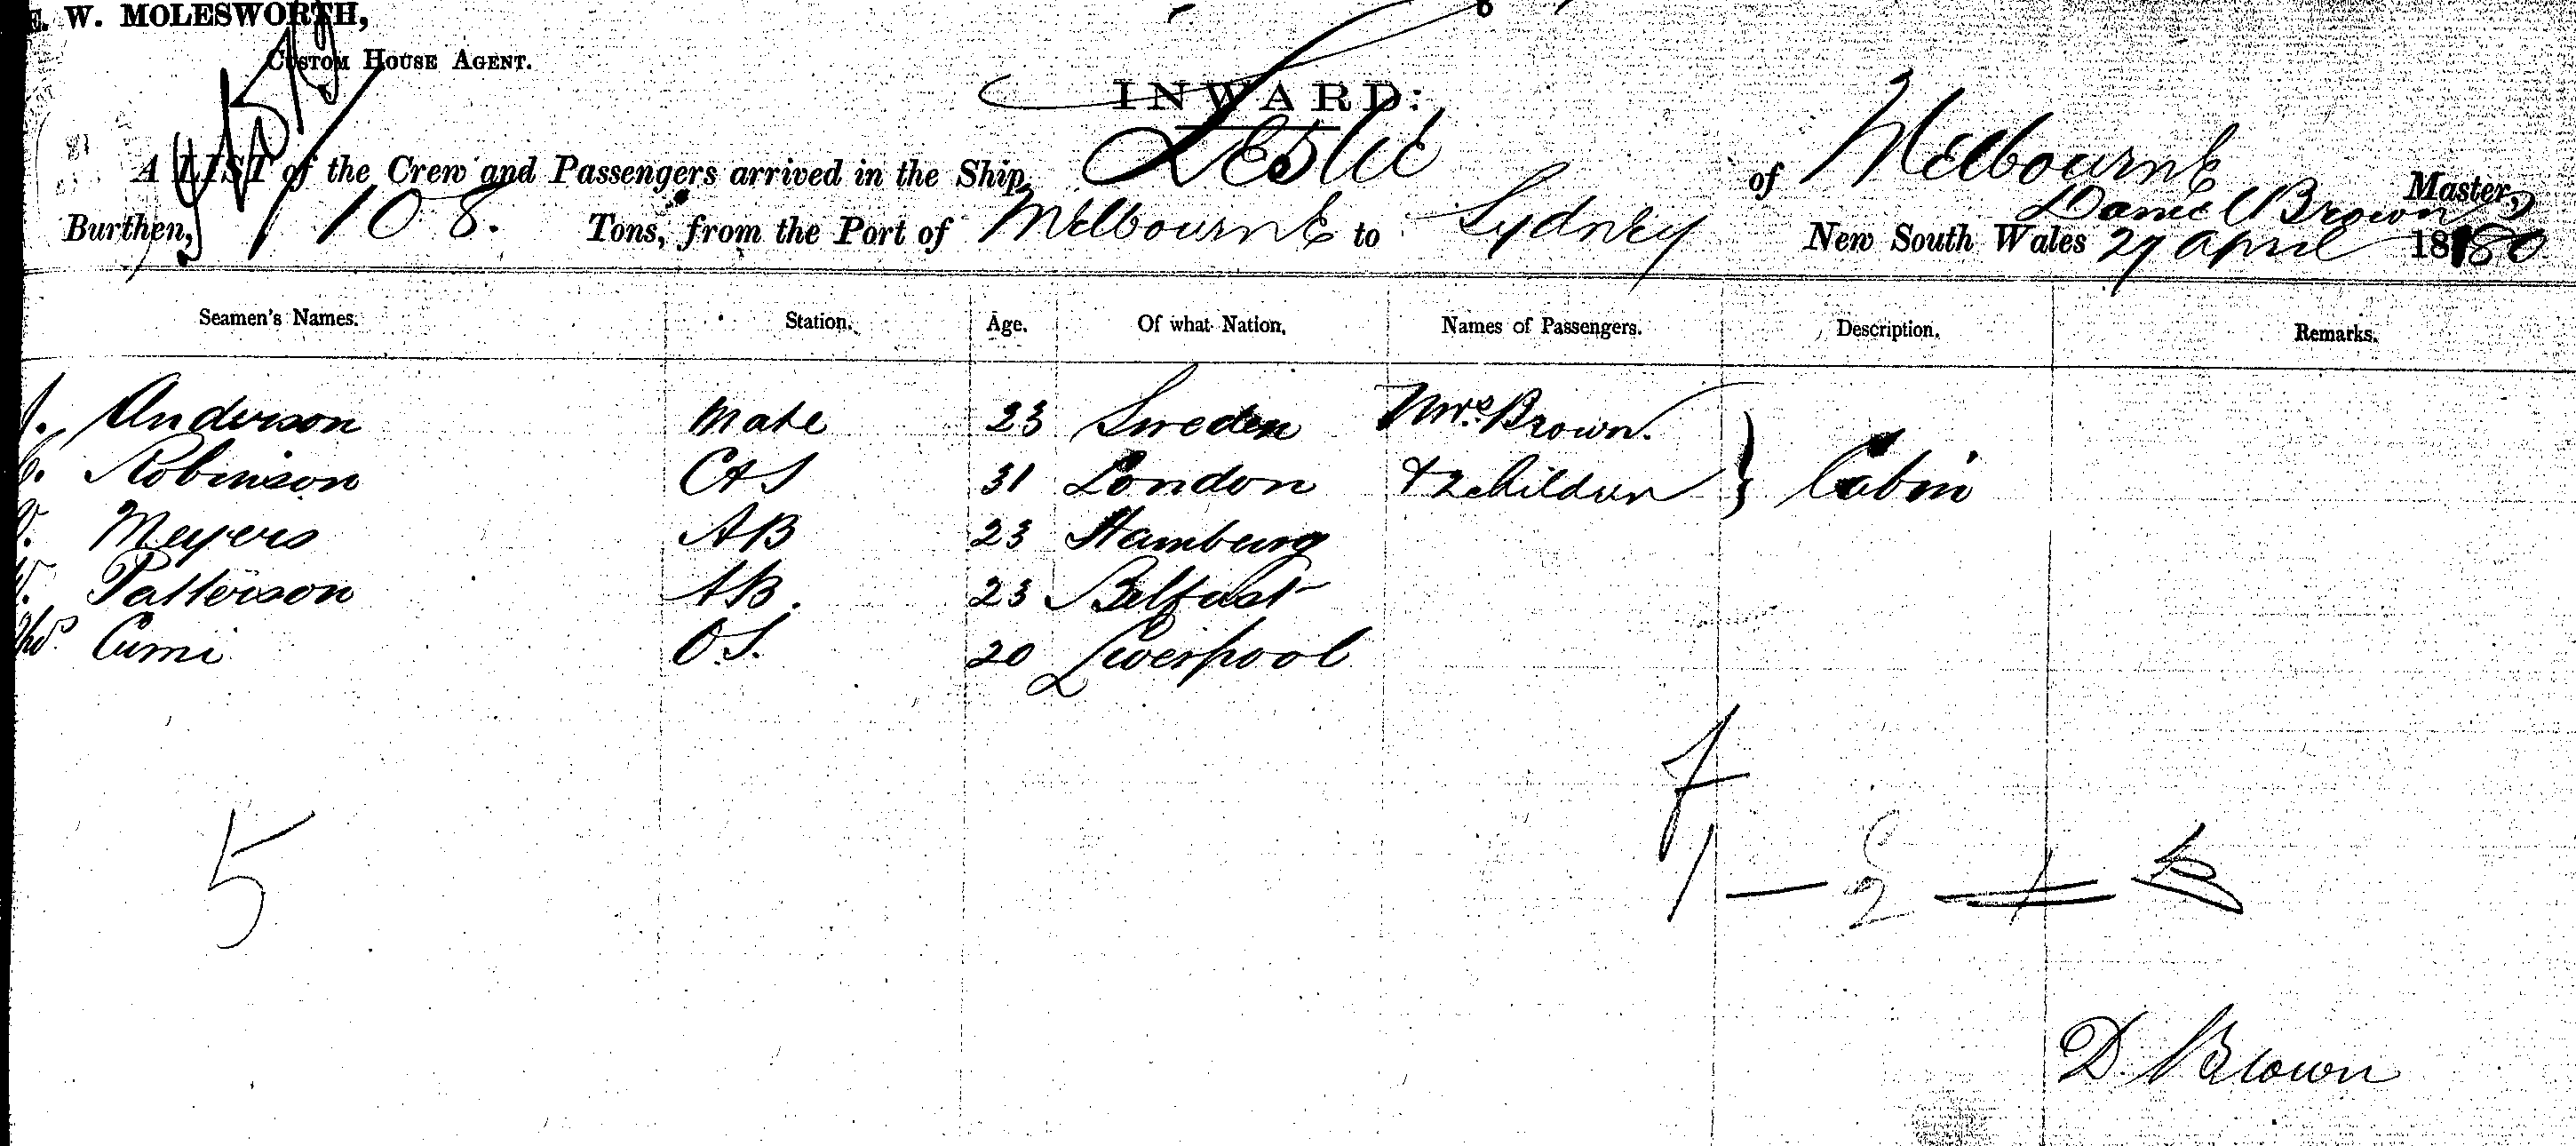 E. W. MOLESWORTH,
CUSTOM HOUSE AGENT.
INWARD:
A LIST of the Crew and Passengers arrived in the Ship Leslie of Melbourne Daniel Brown Master,
Burthen, 108. Tons, from the Port of Melbourne to Sydney New South Wales 27 April 1880
Seamen's Names. Station. Age. Of what Nation. Names of Passengers. Description. Remarks.
Anderson Mate 23 Sweden Mrs. Brown.
Robinson C&S 31 London + 2 children } Cabin
Meyers AB 23 Hamburg
Patterson AB. 23 Belfast
Thos. O.S. 20 Liverpool
5
1 — 2
D. Brown